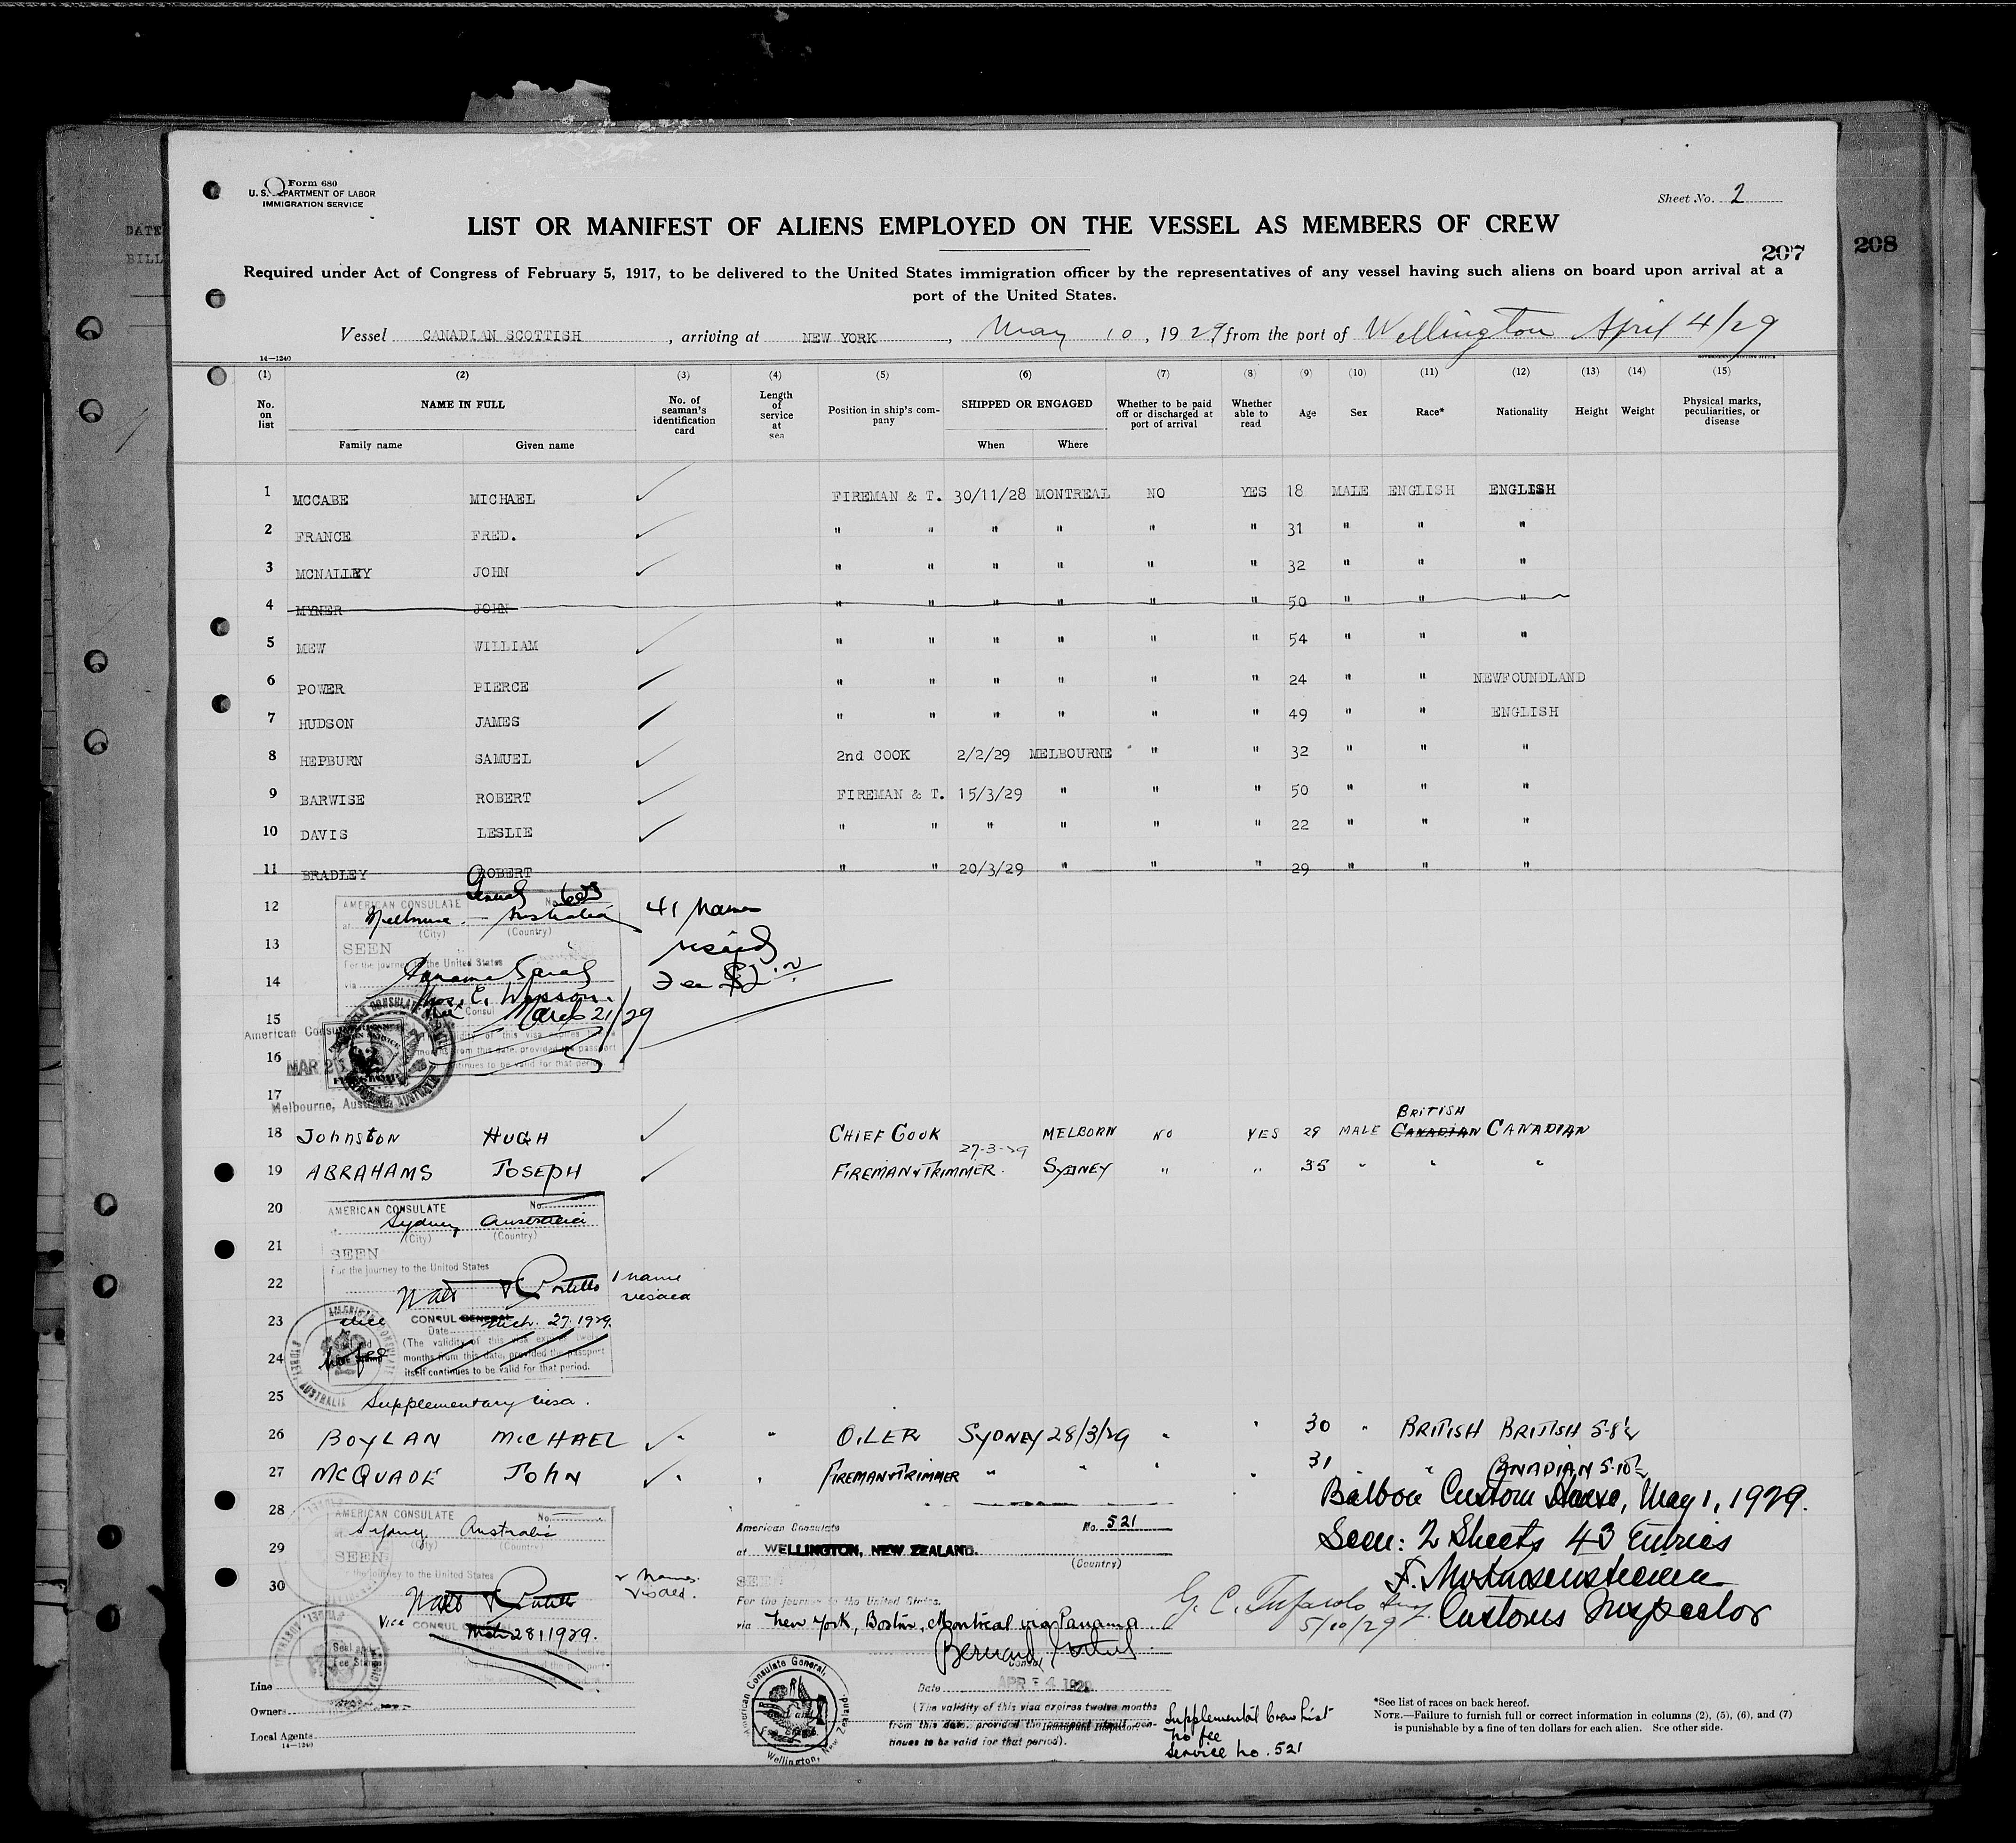 Form 680
U. S. DEPARTMENT OF LABOR
IMMIGRATION SERVICE
Sheet No. 2
LIST OR MANIFEST OF ALIENS EMPLOYED ON THE VESSEL AS MEMBERS OF CREW
207
208
DATE
BILL
Required under Act of Congress of February 5, 1917, to be delivered to the United States immigration officer by the representatives of any vessel having such aliens on board upon arrival at a
port of the United States.
Vessel CANADIAN SCOTTISH, arriving at NEW YORK, May 10, 1929 from the port of Wellington April 4/29
14—1240
(1) (2) (3) (4) (5) (6) (7) (8) (9) (10) (11) (12) (13) (14) (15)
No. on list NAME IN FULL Family name Given name No. of seaman's identification card Length of service at sea Position in ship's company SHIPPED OR ENGAGED When Where Whether to be paid off or discharged at port of arrival Whether able to read Age Sex Race* Nationality Height Weight Physical marks, peculiarities, or disease
1 MCCABE MICHAEL ✓ FIREMAN & T. 30/11/28 MONTREAL NO YES 18 MALE ENGLISH ENGLISH
2 FRANCE FRED. ✓ " " " " " " 31 " " "
3 MCNALLEY JOHN ✓ " " " " " " 32 " " "
4 MYNER JOHN " " " " " " 50 " " "
5 MEW WILLIAM ✓ " " " " " " 54 " " "
6 POWER PIERCE ✓ " " " " " " 24 " " NEWFOUNDLAND
7 HUDSON JAMES ✓ " " " " " " 49 " " ENGLISH
8 HEPBURN SAMUEL ✓ 2nd COOK 2/2/29 MELBOURNE " " 32 " " "
9 BARWISE ROBERT ✓ FIREMAN & T. 15/3/29 " " " 50 " " "
10 DAVIS LESLIE ✓ " " " " " " 22 " " "
11 BRADLEY ROBERT " " 20/3/29 " " " 29 " " "
12
AMERICAN CONSULATE No.
at Melbourne - Australia 41 Names
(City) (Country)
13
SEEN visaed
For the journey to the United States
14
via Panama Canal Fee $2.
15
Consul March 21/29
American Consulate
16
MAR 21
17
Melbourne, Australia
18 Johnston HUGH ✓ CHIEF COOK MELBORN NO YES 29 MALE BRITISH CANADIAN CANADIAN
27-3-29
19 ABRAHAMS JOSEPH ✓ FIREMAN & TRIMMER. SYDNEY " " 35 " " "
20
AMERICAN CONSULATE No.
at Sydney Australia
(City) (Country)
21
SEEN
For the journey to the United States
22
1 name
visaed
23
Vice CONSUL GENERAL
Date Mch. 27. 1929.
(The validity of this visa expires twelve
24
months from this date, provided the passport
itself continues to be valid for that period.
no fee
25
Supplementary visa.
26 BOYLAN MICHAEL ✓ " " OILER SYDNEY 28/3/29 " " 30 " BRITISH BRITISH 5-8½
27 MCQUADE JOHN ✓ " " FIREMAN & TRIMMER " " " " 31 " CANADIAN 5-10½
28
AMERICAN CONSULATE No.
at Sydney Australia
29
SEEN
For the journey to the United States
30
2 Names.
Visaed.
Vice CONSUL
Mch 28 1929.
Seal and
Fee Stamp
American Consulate No. 521
at WELLINGTON, NEW ZEALAND.
(Country)
SEEN
For the journey to the United States.
via New York, Boston, Montreal via Panama
Consul
Date APR 4 1929
(The validity of this visa expires twelve months
from this date, provided the passport itself con-
tinues to be valid for that period).
American Consulate General,
Wellington, New Zealand.
Supplemental Crew List
No fee
Service No. 521
Balboa Custom House, May 1, 1929.
Seen: 2 Sheets 43 Entries
Customs Inspector
5/10/29
Line
Owners
Local Agents
14—1240
*See list of races on back hereof.
NOTE.—Failure to furnish full or correct information in columns (2), (5), (6), and (7)
is punishable by a fine of ten dollars for each alien. See other side.